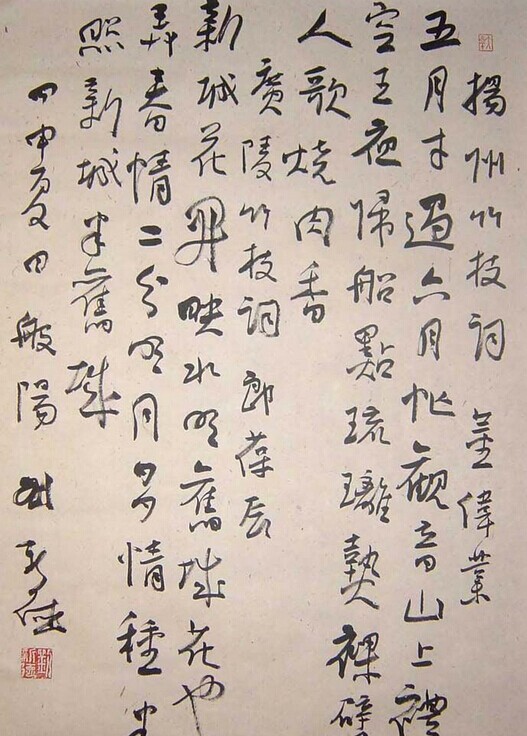 揚州竹枝詞 董偉業
五月才過六月忙觀音山上禮
空王夜歸船點琉璃熱裸臂
人歌燒肉香
廣陵竹枝詞 郎葆辰
新城花開映水明舊城花也
弄春情二分明月多情種半
照新城半舊城
甲申夏日般陽劉新